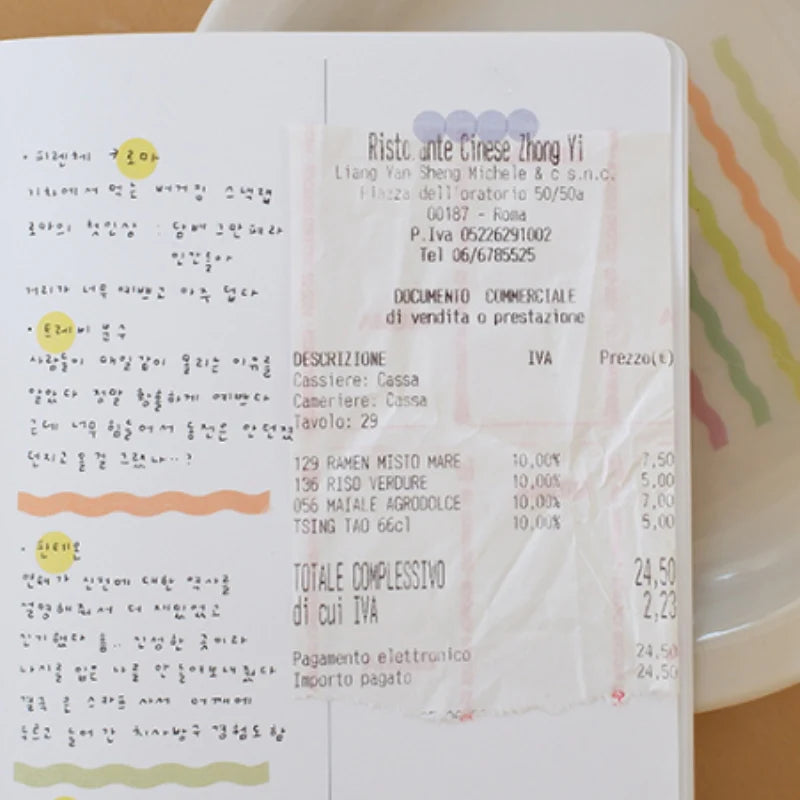 · 피렌체 → 로마
기차에서 먹는 버거킹 스낵랩
로마의 첫인상 : 담배 그만 펴라
인간들아
거리가 너무 예쁘고 아주 덥다
· 트레비 분수
사람들이 매일같이 몰리는 이유를
알았다 정말 황홀하게 예쁘다
근데 너무 힘들어서 동전은 안 던졌
던지고 올 걸 그랬나..?
· 판테온
언태가 신전에 대한 역사를
설명해줘서 더 재밌었고
신기했다 흠.. 신성한 곳이라
나시를 입은 나를 안 들여보내줬다
결국 큰 스카프 사서 어깨에
두르고 들어간 치사방구 경험도 함
Ristorante Cinese Zhong Yi
Liang Yan Sheng Michele & c s.n.c.
Piazza dell'oratorio 50/50a
00187 - Roma
P.Iva 05226291002
Tel 06/6785525
DOCUMENTO COMMERCIALE
di vendita o prestazione
DESCRIZIONE IVA Prezzo(€)
Cassiere: Cassa
Cameriere: Cassa
Tavolo: 29
129 RAMEN MISTO MARE 10,00% 7,50
136 RISO VERDURE 10,00% 5,00
056 MAIALE AGRODOLCE 10,00% 7,00
TSING TAO 66cl 10,00% 5,00
TOTALE COMPLESSIVO 24,50
di cui IVA 2,23
Pagamento elettronico 24,50
Importo pagato 24,50